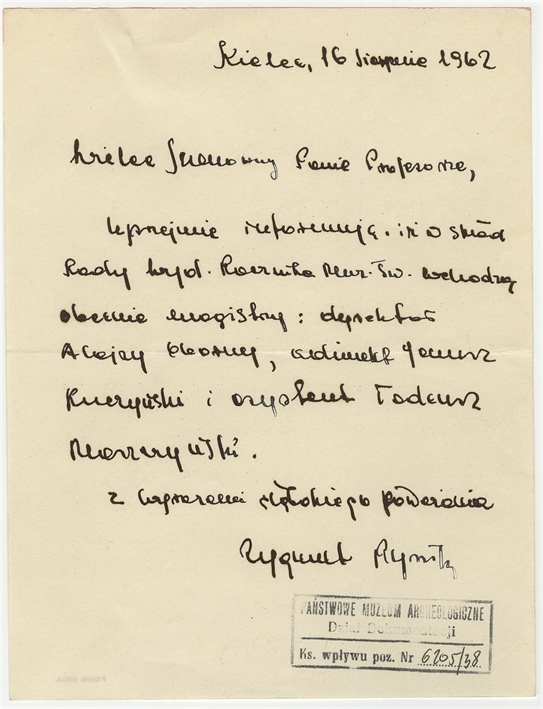 Kielce, 16 sierpnia 1962
Wielce Szanowny Panie Profesorze,
Uprzejmie informuję, iż w skład
Rady Wyd. Rocznika Muz. Św. wchodzą
obecnie magistrzy: dyrektor
Alojzy Oborny, adiunkt Janusz
Kuczyński i asystent Tadeusz
Maszczyński.
Z wyrazami głębokiego poważania
Zygmunt
PAŃSTWOWE MUZEUM ARCHEOLOGICZNE
Dział Dokumentacji
Ks. wpływu poz. Nr 6205/38